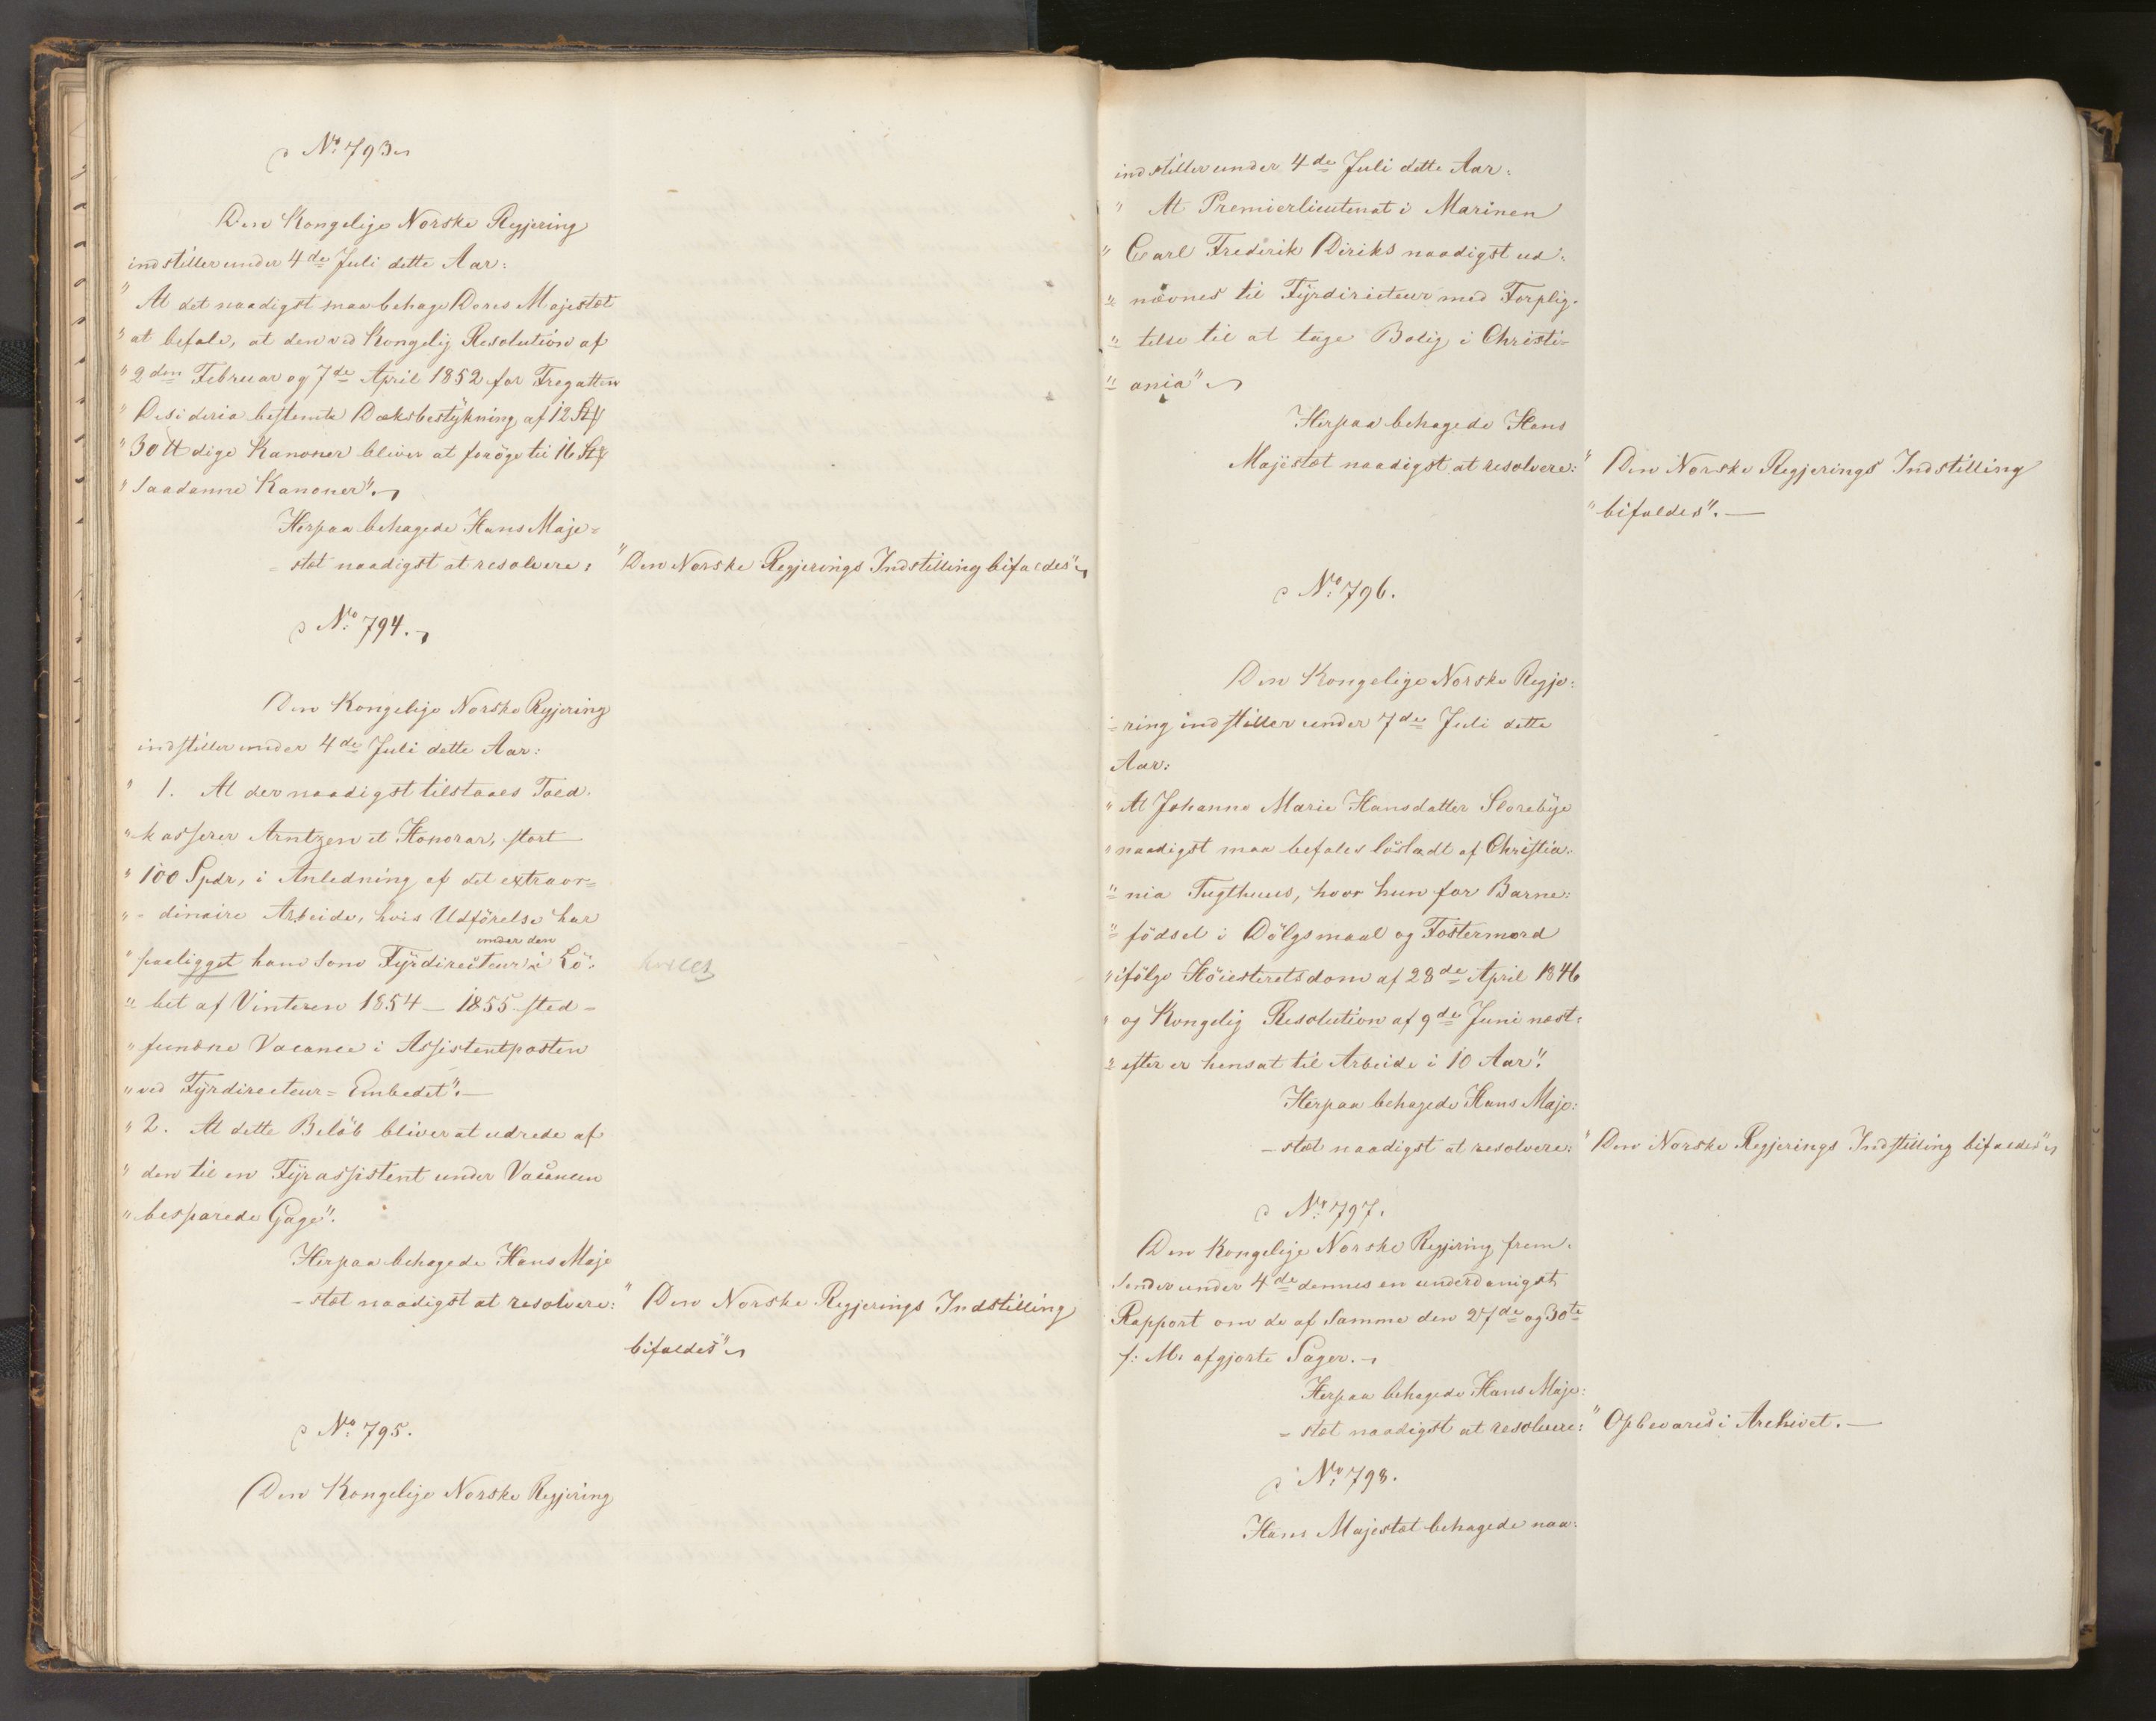 No. 793
Den Kongelige Norske Regjering
indstiller under 4de Juli dette Aar:
" At det naadigst maa behage Deres Majestæt
" at befale, at den ved Kongelig Resolution af
" 2den Februar og 7de April 1852 for Fregatten
" Desideria bestemte Dæksbestykning af 12 Stk
" 30 ℔dige Kanoner bliver at forøge til 16 Stk
" saadanne Kanoner".
Herpaa behagede Hans Maje=
= stæt naadigst at resolvere: "Den Norske Regjerings Indstilling bifaldes"
No. 794.
Den Kongelige Norske Regjering
indstiller under 4de Juli dette Aar:
" 1. At der naadigst tilstaaes Told=
" kasserer Arntzen et Honorar, stort
" 100 Spdr, i Anledning af det extraor=
" = dinaire Arbeide, hvis Udförelse har
under den
" paaligget ham som Fyrdirecteur i Lö=
"= bet af Vinteren 1854 – 1855 sted=
" fundne Vacance i Assistentposten
" ved Fyrdirecteur=Embedet". —
" 2. At dette Belöb bliver at udrede af
" den til en Fyrassistent under Vacancen
" besparede Gage".
Herpaa behagede Hans Maje
= stæt naadigst at resolvere: " Den Norske Regjerings Indstilling
bifaldes"
No. 795.
Den Kongelige Norske Regjering
indstiller under 4de Juli dette Aar:
" At Premierlieutenat i Marinen
" Carl Frederik Diriks naadigst ud=
"= nævnes til Fyrdirecteur med Forplig=
"= telse til at tage Bolig i Christi=
"= ania"
Herpaa behagede Hans
Majestæt naadigst at resolvere: " Den Norske Regjerings Indstilling
" bifaldes". —
No. 796.
Den Kongelige Norske Regje=
=ring indstiller under 7de Juli dette
Aar:
" At Johanne Marie Hansdatter Slorebye
" naadigst maa befales lösladt af Christia=
"= nia Tugthuus, hvor hun for Barne=
"= födsel i Dölgsmaal og Fostermord
" ifölge Höiesteretsdom af 28de April 1846
" og Kongelig Resolution af 9de Juni næst=
"= efter er hensat til Arbeide i 10 Aar".
Herpaa behagede Hans Maje=
= stæt naadigst at resolvere: " Den Norske Regjerings Indstilling bifaldes"
No. 797.
Den Kongelige Norske Regjering frem=
sender under 4de dennes en underdanigst
Rapport om de af Samme den 27de og 30te
f: M. afgjorte Sager.
Herpaa behagede Hans Maje=
= stæt naadigst at resolvere: " Opbevares i Arkivet. —
No. 798.
Hans Majestæt behagede naa=